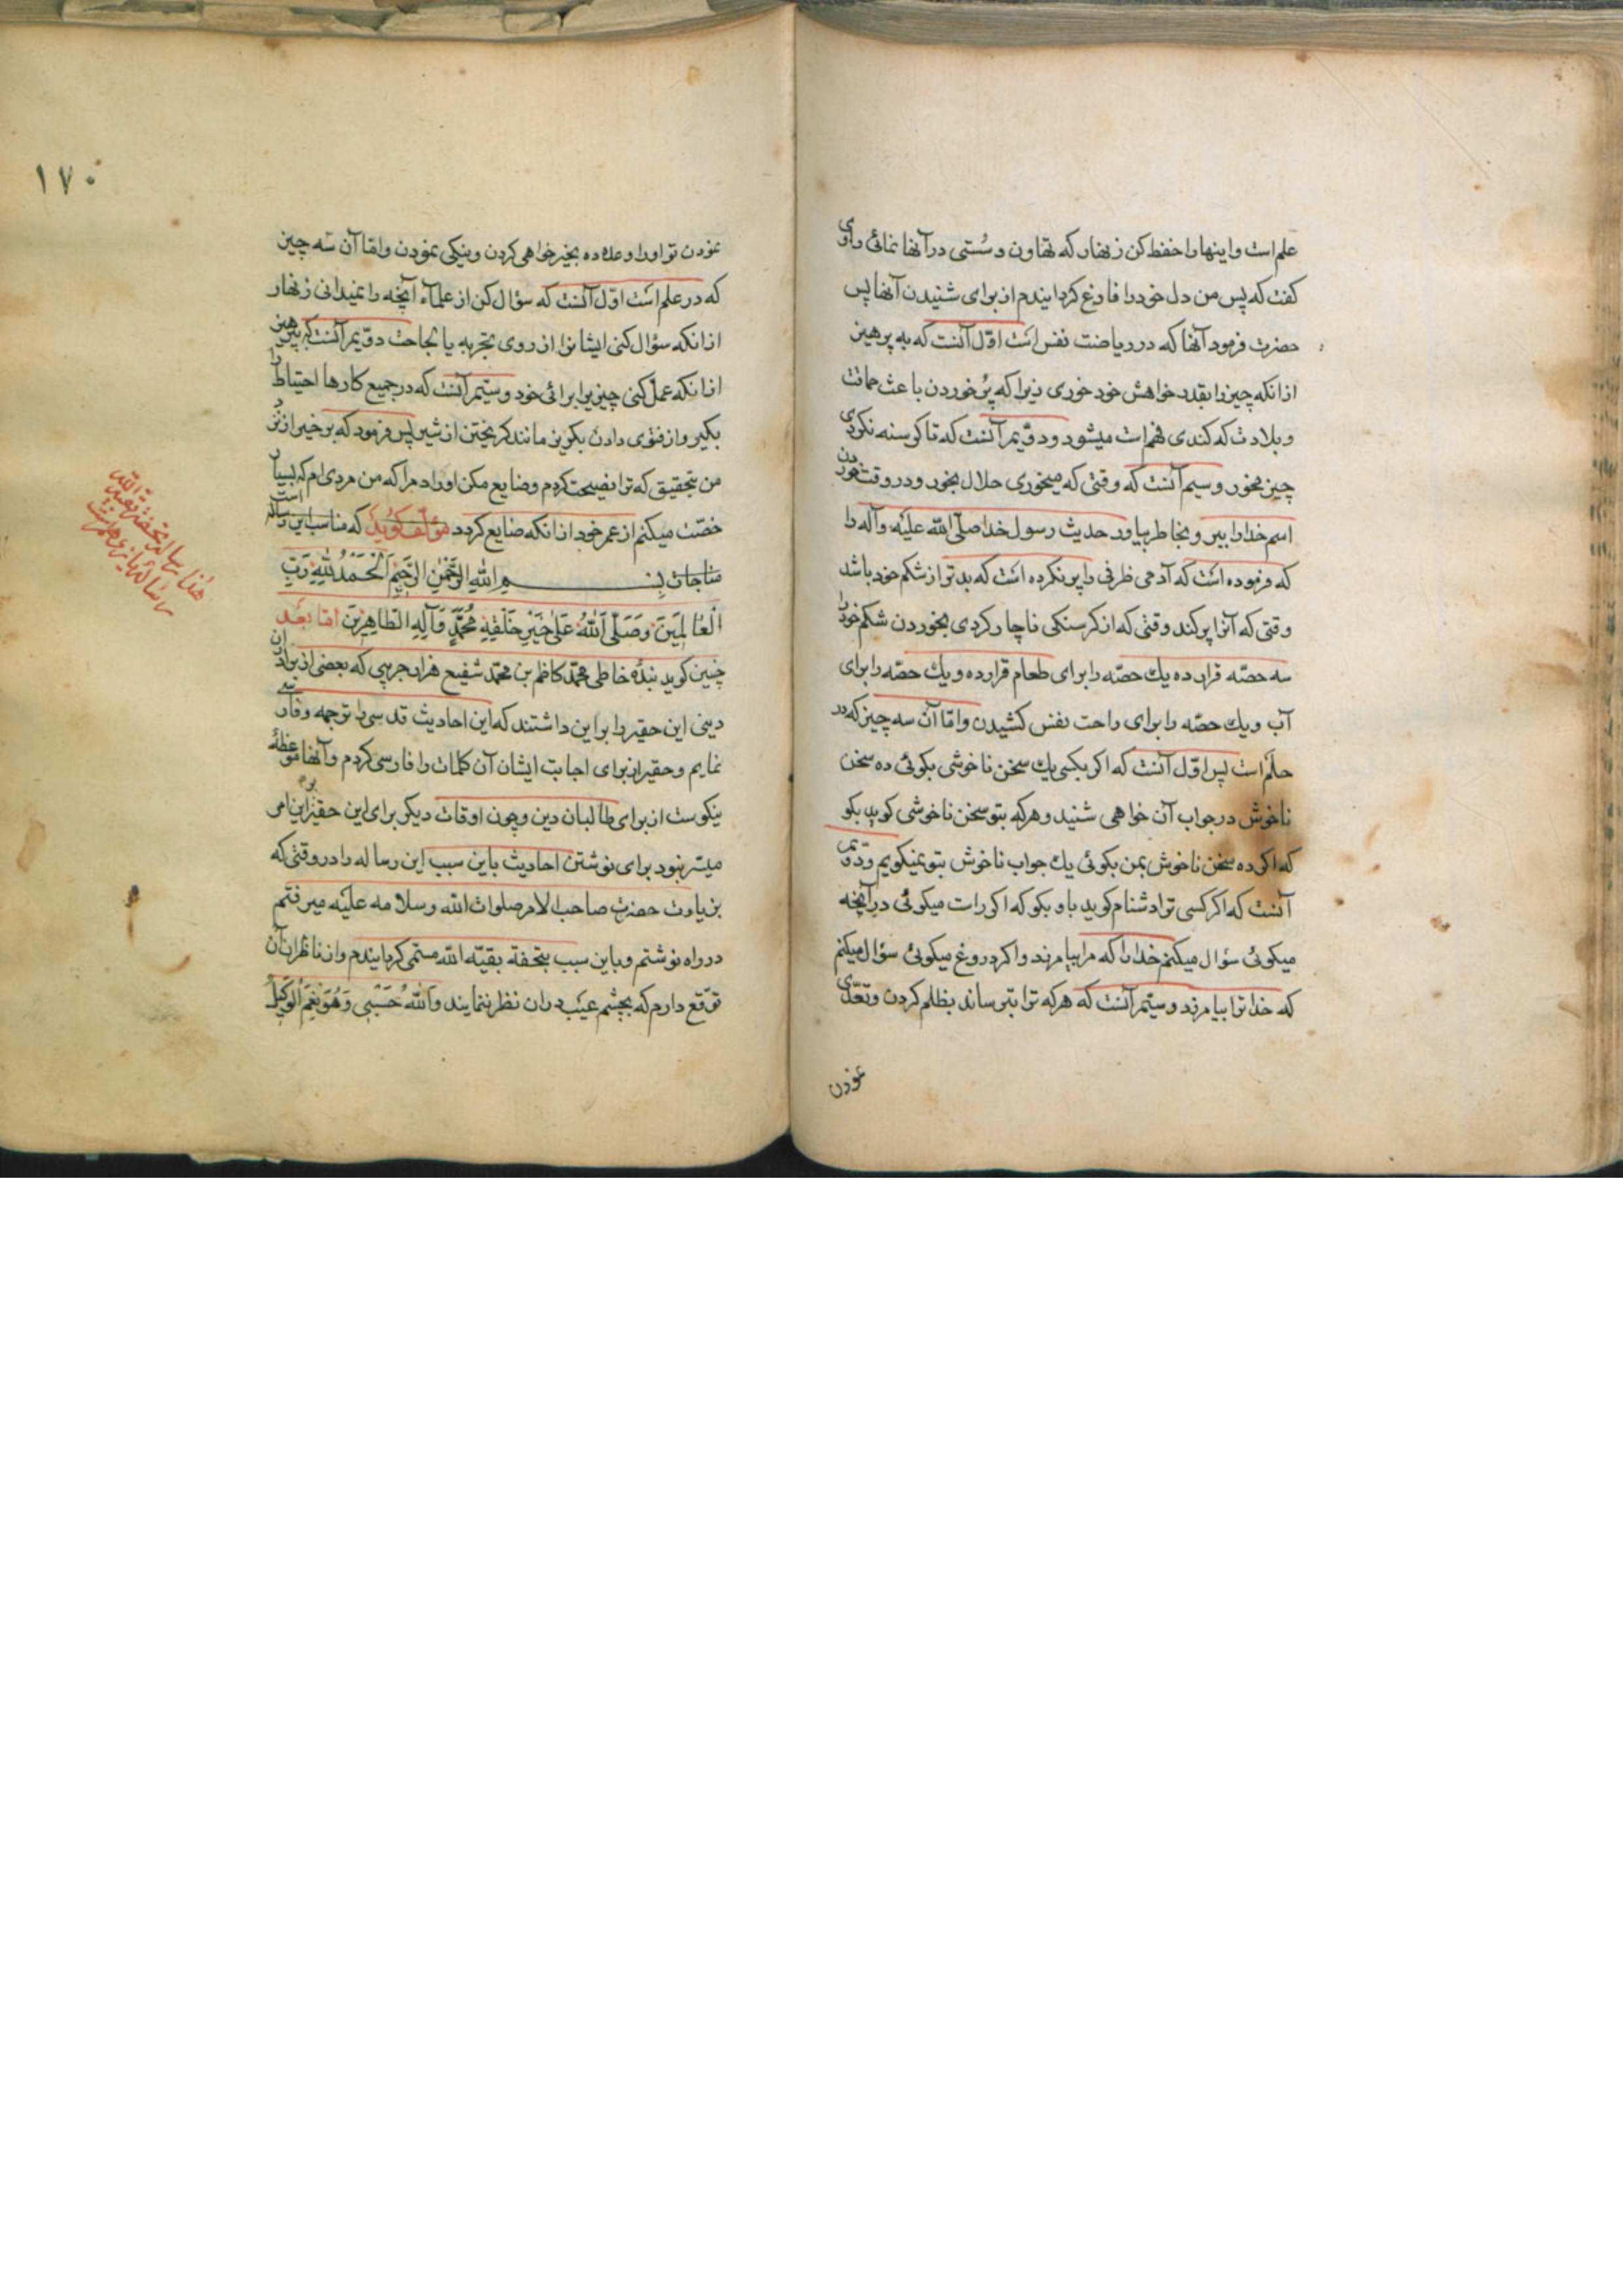 علم است و اینها را حفظ کن زنهار که تهاون و سُستی در آنها نمائی راوی
کفت که پس من دل خود را فارغ کردانیدم از برای شنیدن آنها پس
حضرت فرمود آنها که در ریاضت نفس است اوّل آنست که به پرهیز
از انکه چیز را بقدر خواهش خود خوری زیرا که پُر خوردن باعث حماقت
و بلادت که کندی فهم است میشود و دوّیم آنست که تا کرسنه نکردی
چیز مخور و سیم آنست که وقتی که میخوری حلال بخور و در وقت خوردن
اسم خدا را ببر و بخاطر بیاور حدیث رسول خدا صلّی الله علیه و آله را
که فرموده است که آدمی ظرفی را پر نکرده است که بدتر از شکم خود باشد
وقتی که آنرا پر کند وقتی که از کرسنکی ناچار کردی بخوردن شکم خود را
سه حصّه قرار ده یك حصّه را برای طعام قرار ده و یك حصّه را برای
آب و یك حصّه را برای راحت نفس کشیدن و امّا آن سه چیز که در
حلم است پس اوّل آنست که اکر بکسی یك سخن ناخوشی بکوئی ده سخن
ناخوش در جواب آن خواهی شنید و هر که بتو سخن ناخوشی کوید بکو
که اکر ده سخن ناخوش بمن بکوئی یك جواب ناخوش بتو نمیکویم و دوّیم
آنست که اکر کسی ترا دشنام کوید باو بکو که اکر راست میکوئی در آنچه
میکوئی سؤال میکنم خدا را که مرا بیامرزد و اکر دروغ میکوئی سؤال میکنم
که خدا ترا بیامرزد و سیّم آنست که هر که ترا بترساند بظلم کردن و تعدّی
نمودن
١٧٠
نمودن تو او را وعده ده بخیر خواهی کردن و نیکی نمودن و امّا آن سه چیز
که در علم است اوّل آنست که سؤال کن از علمآء آنچه را نمیدانی زنهار
از انکه سؤال کنی ایشانرا از روی تجربه یا لجاجت دوّیم آنست که بپرهیز
از انکه عمل کنی چیزیرا برائی خود و سیّم آنست که در جمیع کارها احتیاط را
بکیر و از فتوی دادن بکریز مانند کریختن از شیر پس فرمود که برخیز از نزد
من بتحقیق که ترا نصیحت کردم و ضایع مکن اوراد مرا که من مردی ام که بسیار
خسّت میکنم از عمر خود از انکه ضایع کردد مؤلّف کوید که مناسب این رساله است
مناجات بسم الله الرّحمن الرّحیم الحمد لله ربّ
العالمین وصلّی الله علی خیر خلقه محمّد وآله الطّاهرین امّا بعد
چنین کوید بندهٔ خاطی محمّد کاظم بن محمّد شفیع هزار جریبی که بعضی از برادران
دینی این حقیر را بر این داشتند که این احادیث قدسی را ترجمه و فارسی
نمایم و حقیر از برای اجابت ایشان آن کلمات را فارسی کردم و آنها موعظهٔ
نیکوست از برای طالبان دین و چون اوقات دیکر برای این حقیر این امر
میسّر نبود برای نوشتن احادیث باین سبب این رساله را در وقتی که
بزیارت حضرت صاحب الامر صلوات الله وسلامه علیه میرفتم
در راه نوشتم و باین سبب بتحفهٔ بقیّه الله مسمّی کردانیدم و از ناظران آن
توقّع دارم که بچشم عیب در ان نظر ننمایند والله حَسْبِی وَهُوَ نِعْمَ الوَکِیل
هذا رسالهٔ تحفهٔ بقیة الله